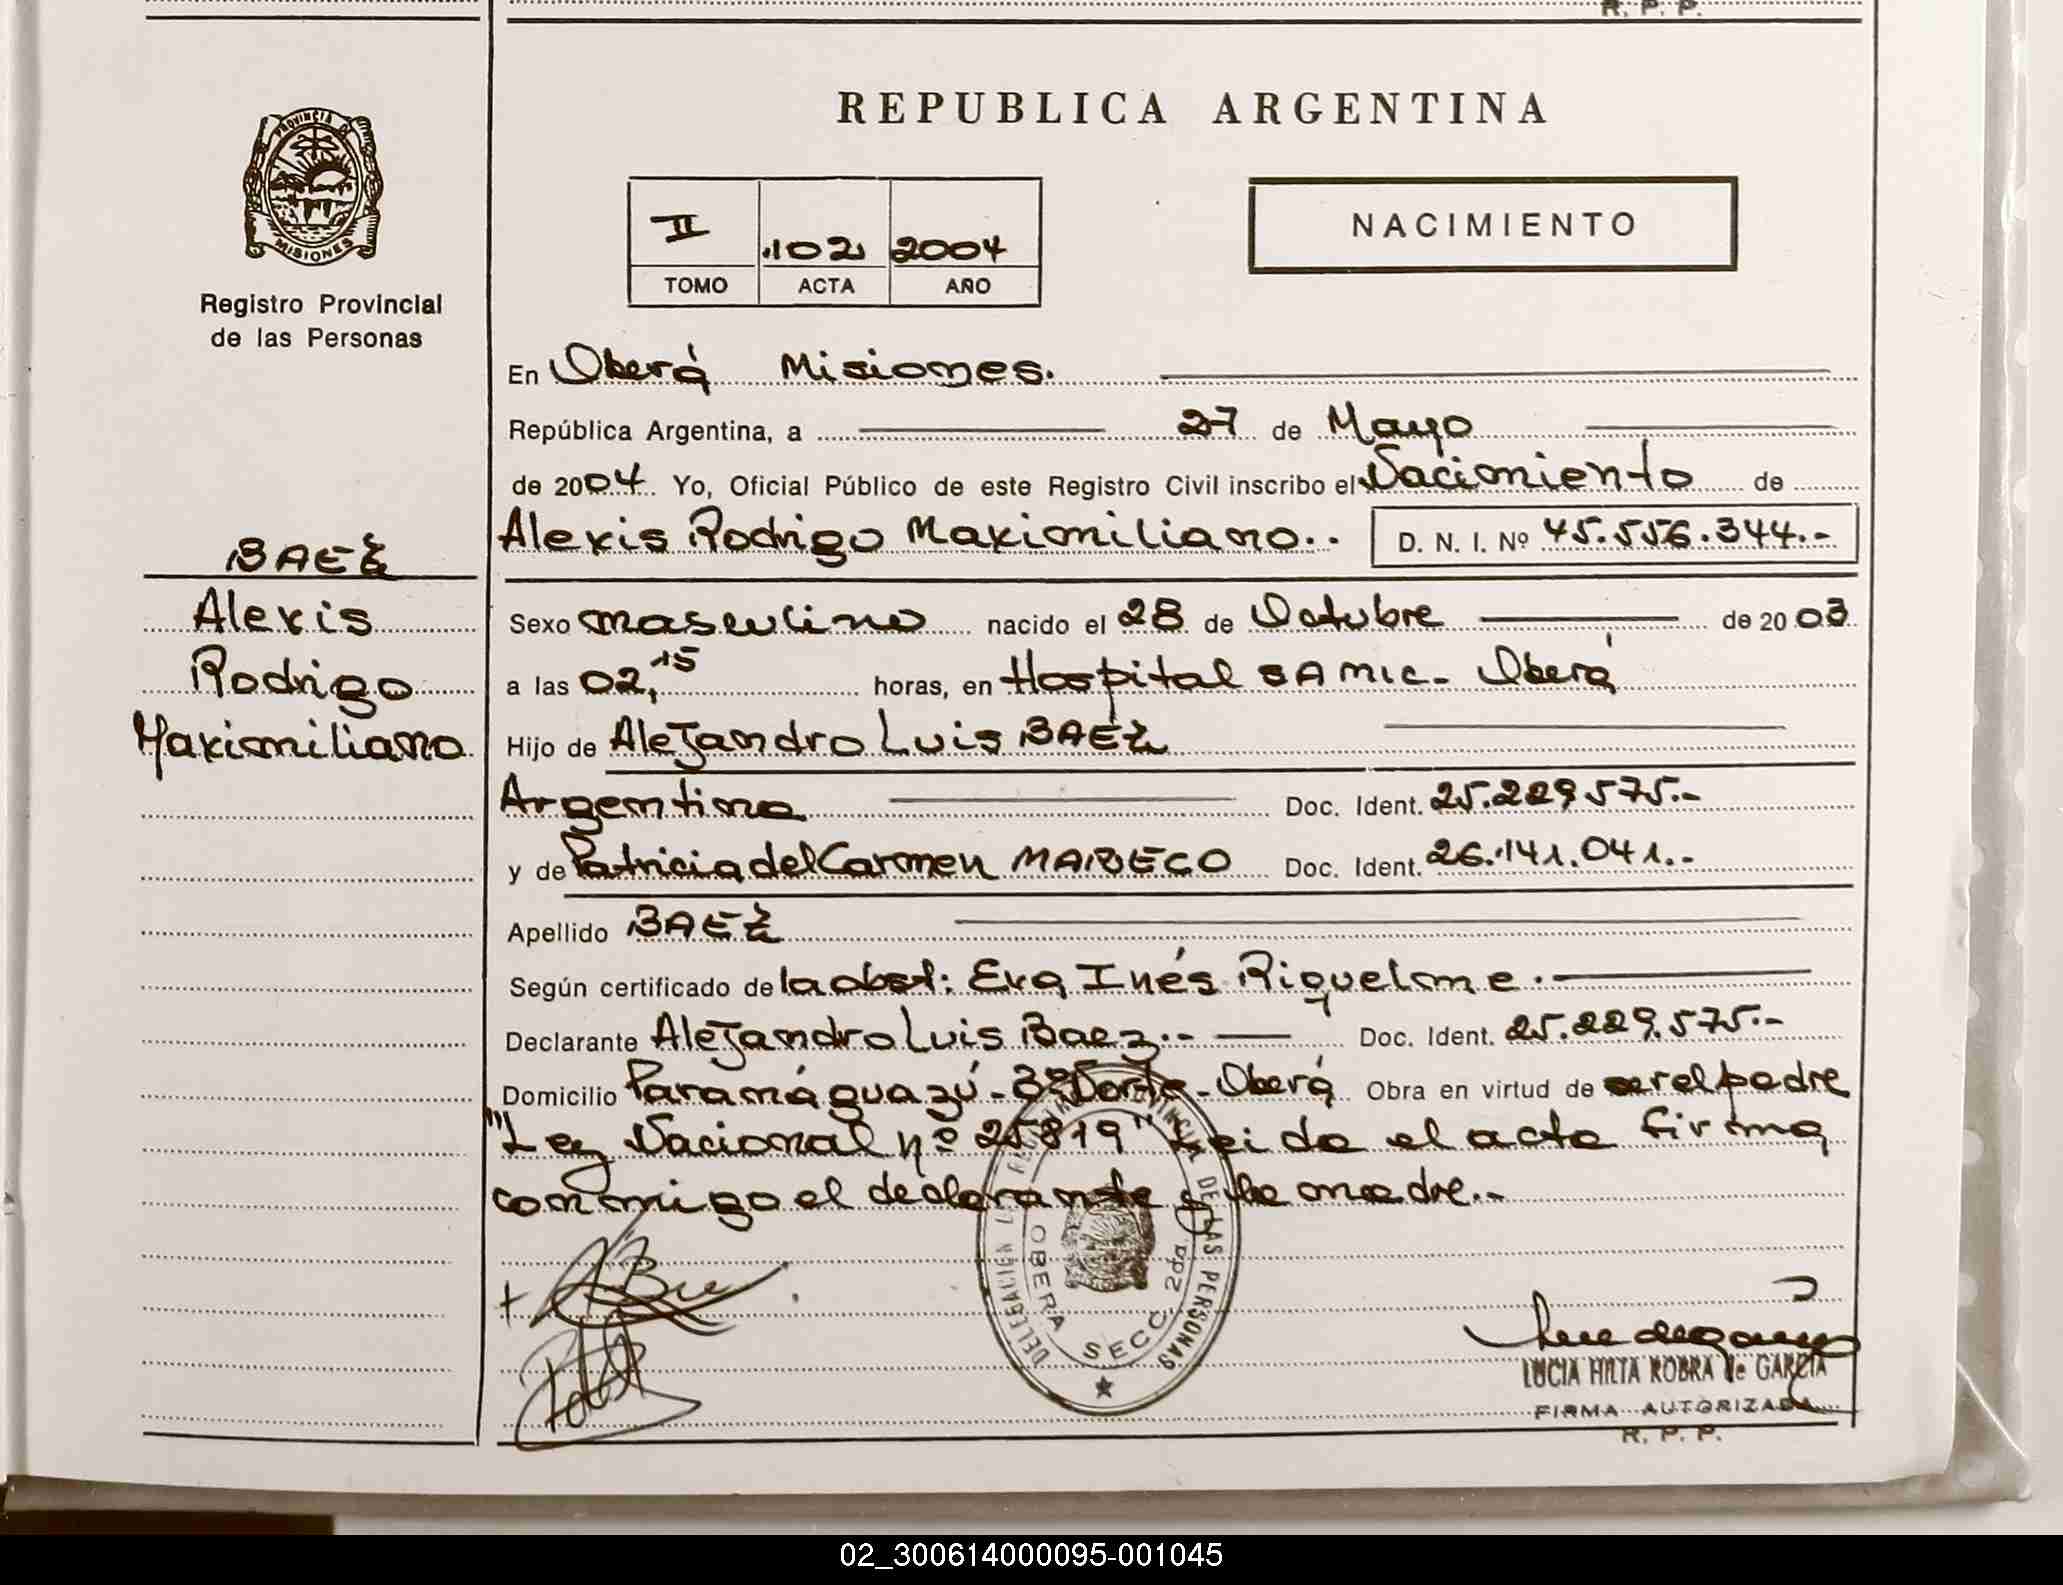 R. P. P.
PROVINCIA DE
MISIONES
Registro Provincial
de las Personas
REPUBLICA ARGENTINA
II 102 2004
TOMO ACTA AÑO
NACIMIENTO
En Oberá Misiones.
República Argentina, a 27 de Mayo
de 2004 Yo, Oficial Público de este Registro Civil inscribo el Nacimiento de
Alexis Rodrigo Maximiliano.. D. N. I. Nº 45.556.344.-
BAEZ
Alexis
Rodrigo
Maximiliano
Sexo masculino nacido el 28 de Octubre de 2003
a las 02,15 horas, en Hospital SAMIC- Oberá
Hijo de Alejandro Luis BAEZ
Argentino Doc. Ident. 25.229.575.-
y de Patricia del Carmen MARECO Doc. Ident. 26.141.041.-
Apellido BAEZ
Según certificado de la obst: Eva Inés Riquelme.
Declarante Alejandro Luis Baez.- Doc. Ident. 25.229.575.-
Domicilio Paranáguazú-3º Norte-Oberá Obra en virtud de ser el padre
"Ley Nacional nº 25819" Leido el acta firma
conmigo el declarante y la madre.-
DELEGACION REGISTRO PROVINCIAL DE LAS PERSONAS
OBERA SECC. 2da.
LUCIA HILTA ROBRA de GARCIA
FIRMA AUTORIZADA
R. P. P.
02_300614000095-001045